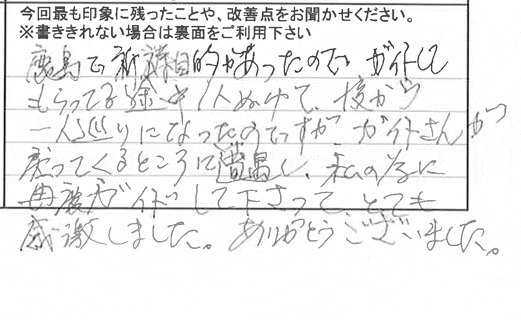 今回最も印象に残ったことや、改善点をお聞かせください。
※書ききれない場合は裏面をご利用下さい
鹿島で新 目的があったので ガイドして
もらってる途中1人ぬけて、後から
一人巡りになったのですが ガイドさんが
戻ってくるところに遭遇し、私の為に
再度ガイドして下さって、とても
感激しました。ありがとうございました。